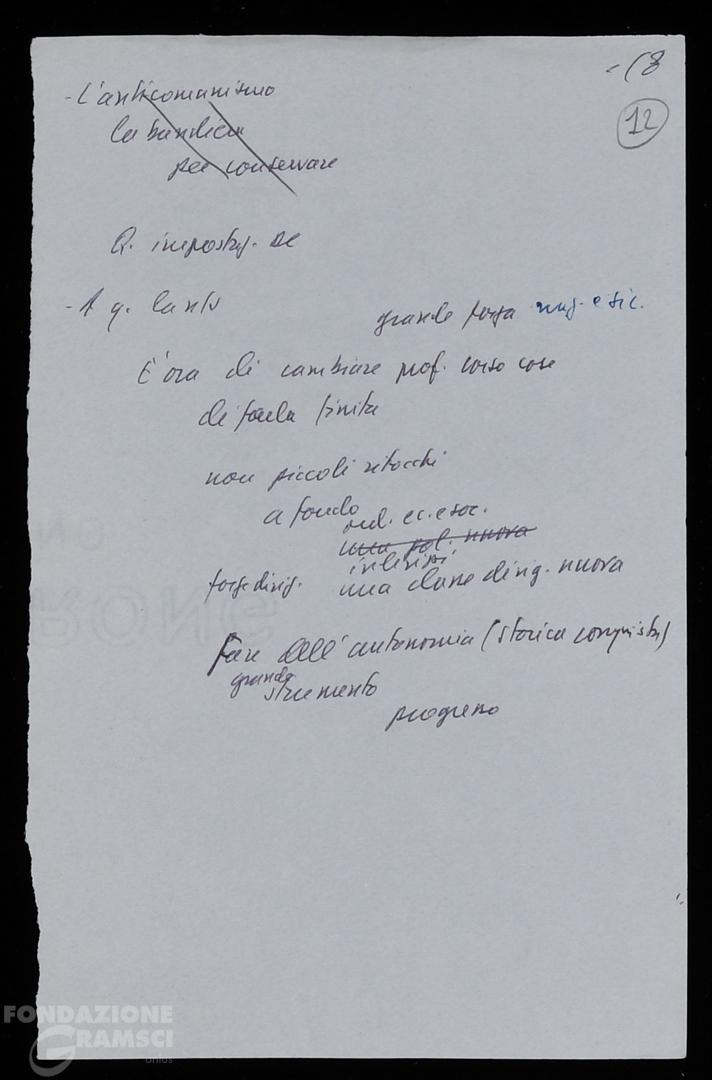 -18
12
- L'anticomunismo
la bandiera
per conservare
Q. impostaz. DC
- A q. lato
grande forza naz. e sic.
È ora di cambiare prof. corso cose
di farla finita
non piccoli ritocchi
a fondo
ind. ec. e soc.
una pol. nuova
indirizzi
forze dirig. una classe dirig. nuova
Fare dell'autonomia (storica conquista)
grande
strumento
progresso
FONDAZIONE
GRAMSCI
onlus